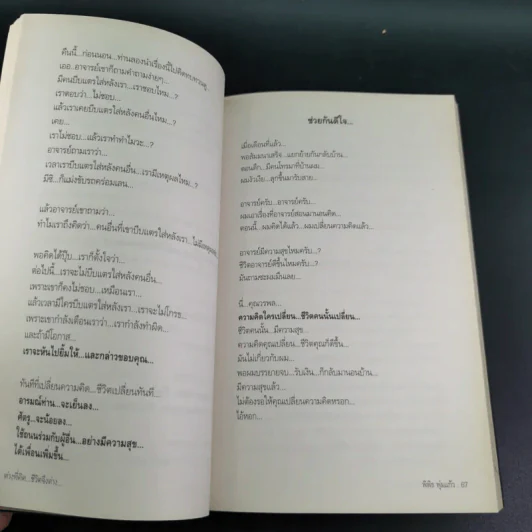 คืนนี้...ก่อนนอน...ท่านลองนำเรื่องนี้ไปคิดทบทวนดู...
เออ...อาจารย์เขาก็ถามคำถามง่ายๆ...
มีคนบีบแตรใส่หลังเรา...เราชอบไหม...?
เราตอบว่า...ไม่ชอบ...
แล้วเราเคยบีบแตรใส่หลังคนอื่นไหม...?
เคย...
เราไม่ชอบ...แล้วเราทำทำไมวะ...?
อาจารย์ถามเราว่า...
เวลาเราบีบแตรใส่หลังคนอื่น...เรามีเหตุผลไหม...?
มีซิ...ก็แม่งขับรถคร่อมเลน...
แล้วอาจารย์เขาถามว่า...
ทำไมเราถึงคิดว่า...คนอื่นที่เขาบีบแตรใส่หลังเรา...ไม่มีเหตุผล
พอคิดได้ปุ๊บ...เราก็ตั้งใจว่า...
ต่อไปนี้...เราจะไม่บีบแตรใส่หลังคนอื่น...
เพราะเขาก็คงไม่ชอบ...เหมือนเรา...
แล้วเวลามีใครบีบแตรใส่หลังเรา...เราจะไม่โกรธ...
เพราะเขากำลังเตือนเราว่า...เรากำลังทำผิด...
และถ้ามีโอกาส...
เราจะหันไปยิ้มให้...และกล่าวขอบคุณ...
ทันทีที่เปลี่ยนความคิด...ชีวิตเปลี่ยนทันที...
อารมณ์ท่าน...จะเย็นลง...
ศัตรู...จะน้อยลง...
ใช้ถนนร่วมกับผู้อื่น...อย่างมีความสุข...
ได้เพื่อนเพิ่มขึ้น...
ต่างที่คิด...ชีวิตจึงต่าง...
ช่วยกันดีใจ...
เมื่อเดือนที่แล้ว...
พอสัมมนาเสร็จ...แยกย้ายกันกลับบ้าน...
ตอนดึก...มีคนโทรมาที่บ้านผม...
ผมงัวเงีย...ลุกขึ้นมารับสาย...
อาจารย์ครับ...อาจารย์ครับ...
ผมเอาเรื่องที่อาจารย์สอนมานอนคิด...
ตอนนี้...ผมคิดได้แล้ว...ผมเปลี่ยนความคิดแล้ว...
อาจารย์มีความสุขไหมครับ...?
ชีวิตอาจารย์ดีขึ้นไหมครับ...?
มันถามซะผมมึนเลย...
นี่...คุณวรพล...
ความคิดใครเปลี่ยน...ชีวิตคนนั้นเปลี่ยน...
ชีวิตคนนั้น...มีความสุข...
ความคิดคุณเปลี่ยน...ชีวิตคุณก็ดีขึ้น...
มันไม่เกี่ยวกับผม...
พอผมบรรยายจบ...รับเงิน...ก็กลับมานอนบ้าน...
มีความสุขแล้ว...
ไม่ต้องรอให้คุณเปลี่ยนความคิดหรอก...
ไอ้หอก...
พิสิฐ พุ่มแก้ว...87